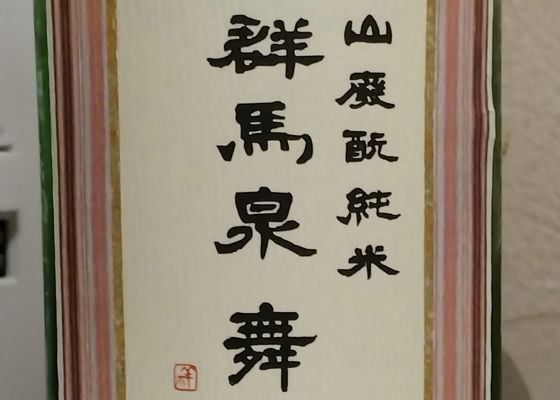 山廃酛純米
群馬泉舞